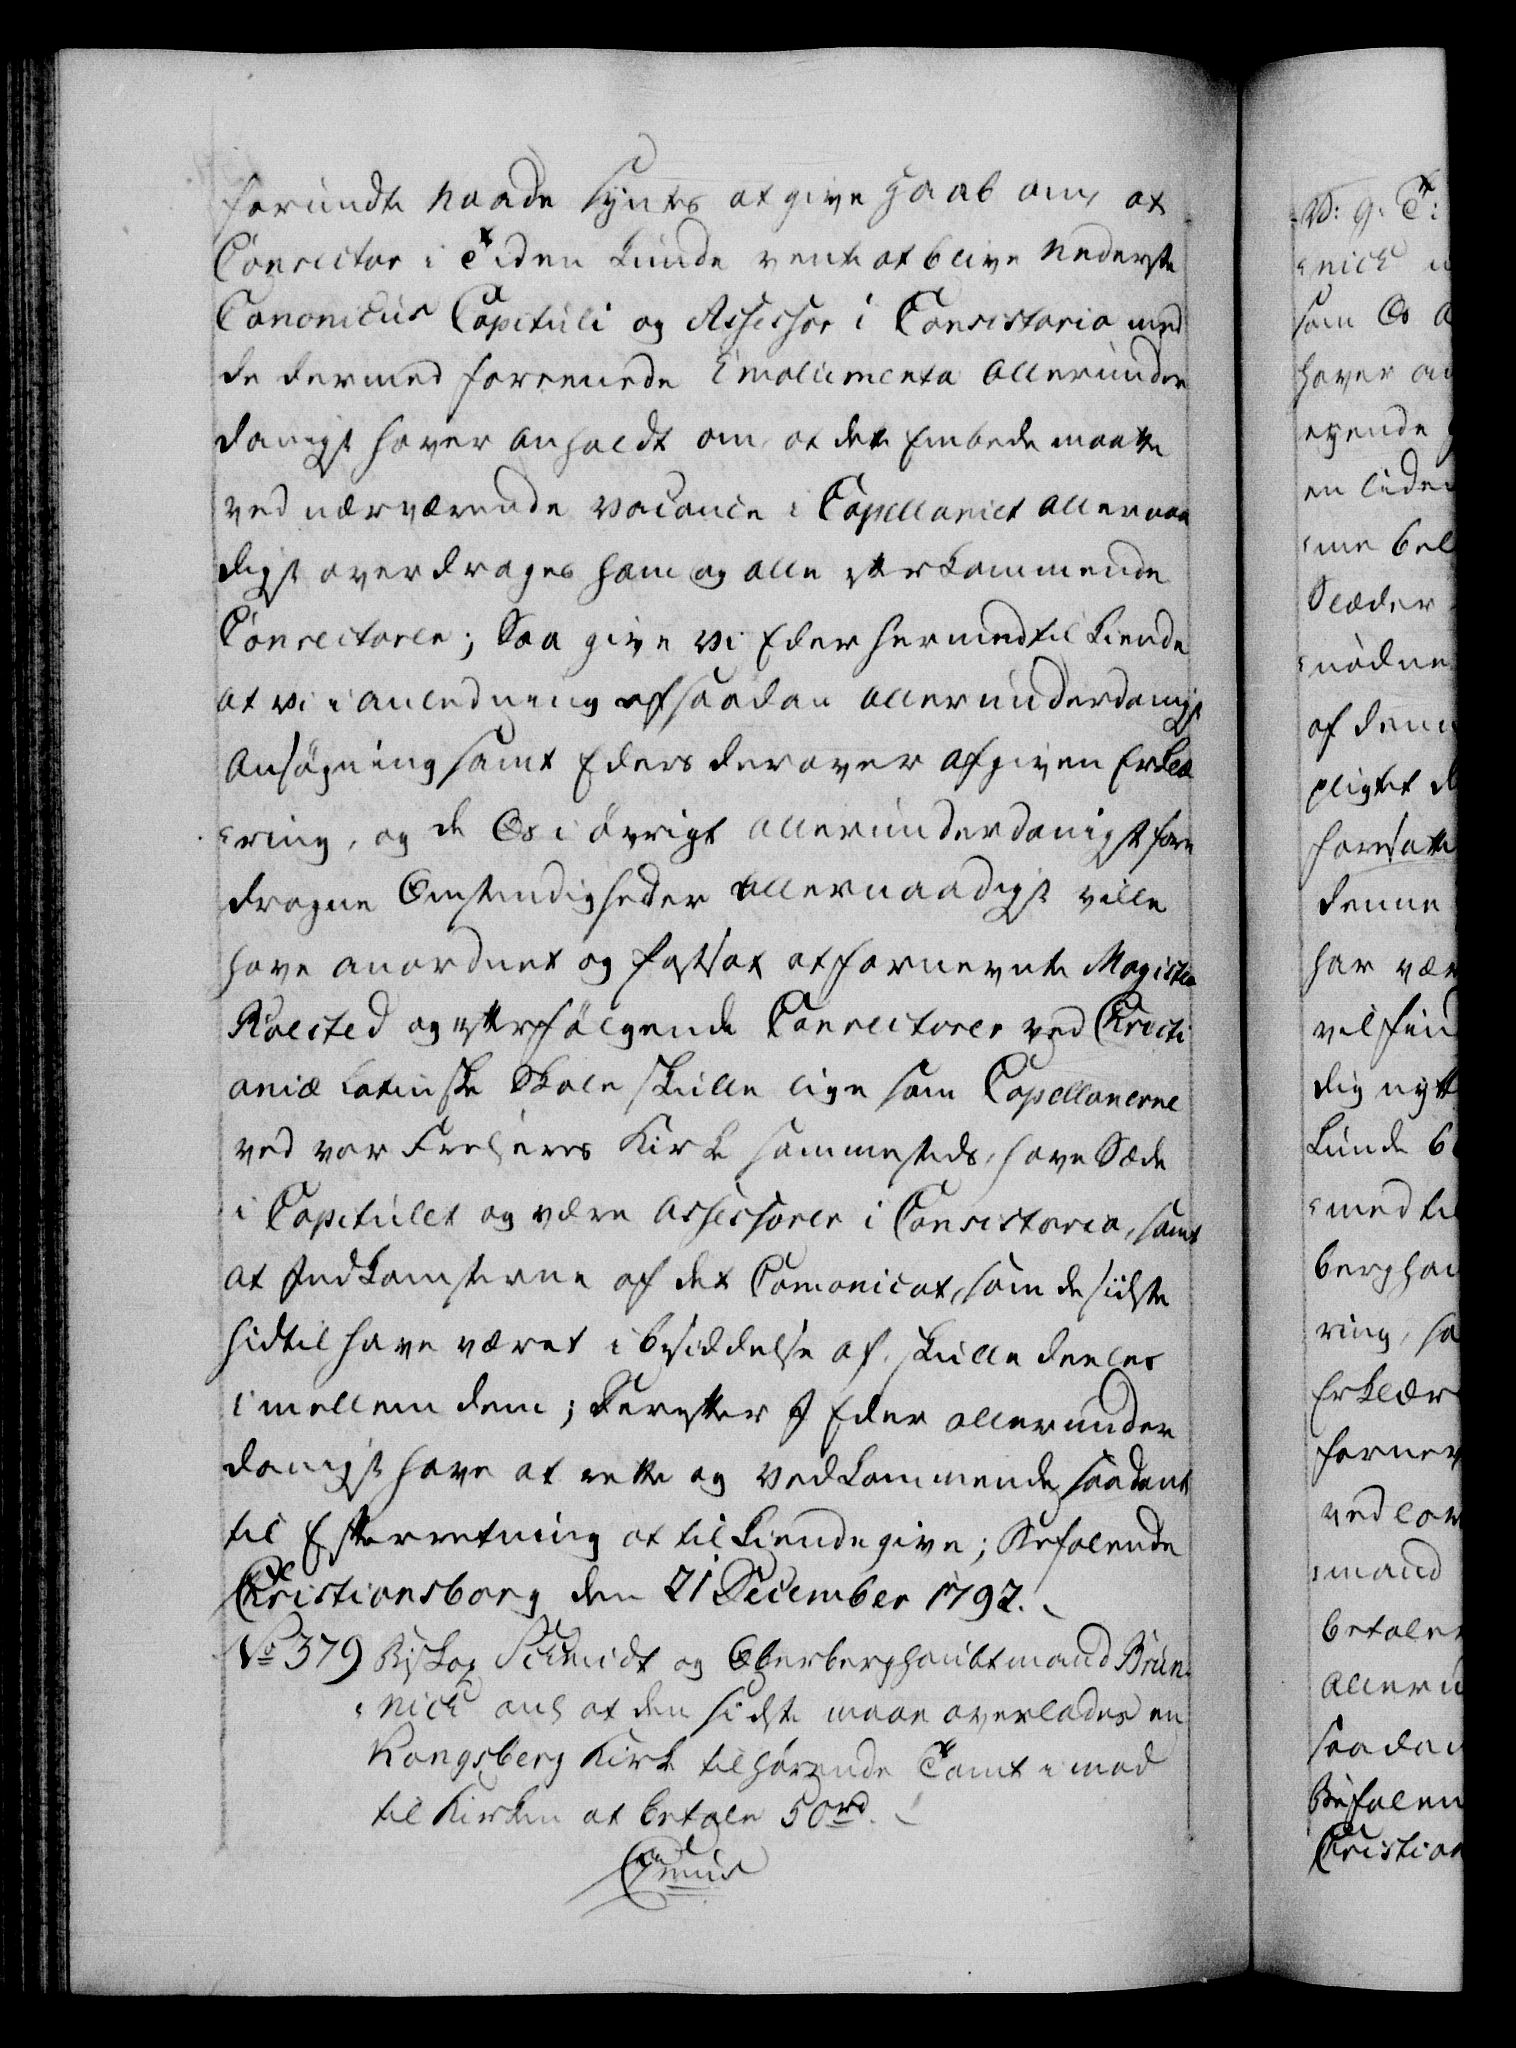 forundte Naade syntes at give Haab om, at
Conrector i Tiden kunde vente at blive Nederste
Canonicus Capituli og Assessor i Consistorio med
de dermed foreenede Emolumenta allerunder
danigst haver anholdt om, at dette Embede maatte
ved nærværende Vacance i Capellaniet allernaa
digst overdrages ham og alle efterkommende
Conrectorer; Saa give Vi Eder hermed til kiende
at Vi i Anledning af saadan allerunderdanigst
Ansøgning samt Eders derover afgiven Erklæ
ring, og de Os i øvrigt allerunderdanigst fore
dragne Omstendigheder allernaadigst ville
have anordnet og fastsat at fornevnte Magister
Rosted og efterfølgende Conrectorer ved Christi
aniæ latinske Skole skulle lige som Capellanerne
ved vor Frelseres Kirke sammesteds, have Sæde
i Capitulet og være Assessorer i Consistorio, samt
at Indkomsterne af det Canonicat, som de sidste
hidtil have været i besiddelse af, skulle deeles
imellem dem; Derefter I Eder allerunder
danigst have at rette og Vedkommende saadant
til Efterretning at tilkiendegive; Befalende
Christiansborg den 21 December 1792.
No 379 Biskop Schmidt og Oberberghaubtmand Brün
nich anh at den sidste maae overlades en
Kongsberg Kirke tilhørende Tomt imod
til Kirken at betale 50rd.
V: g: T:
nich
som Os
haver
eyende
en liden
me
Sæder
nødne
af
pligtet
forsatte
denne
har
vil
dig
kunde
med
ring,
Erklær
mand
betaler
saadan
Befalen
Christian